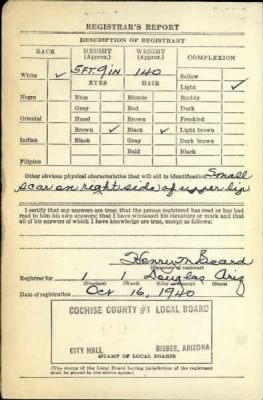 REGISTRAR'S REPORT
DESCRIPTION OF REGISTRANT
RACE HEIGHT (Approx.) WEIGHT (Approx.) COMPLEXION
White ✓ 5FT. 9 IN 140 Sallow
EYES HAIR Light ✓
Negro Blue Blonde Ruddy
Gray Red Dark
Oriental Hazel Brown Freckled
Brown ✓ Black ✓ Light brown
Indian Black Gray Dark brown
Bald Black
Filipino
Other obvious physical characteristics that will aid in identification Small
scar on right side of upper lip
I certify that my answers are true; that the person registered has read or has had
read to him his own answers; that I have witnessed his signature or mark and that
all of his answers of which I have knowledge are true, except as follows:
Henry M Beard
(Signature of registrar)
Registrar for 1 1 Douglas Ariz
(Precinct) (Ward) (City or County) (State)
Date of registration Oct 16, 1940
COCHISE COUNTY #1 LOCAL BOARD
CITY HALL BISBEE, ARIZONA
STAMP OF LOCAL BOARD
(The stamp of the Local Board having jurisdiction of the registrant
shall be placed in the above space.)